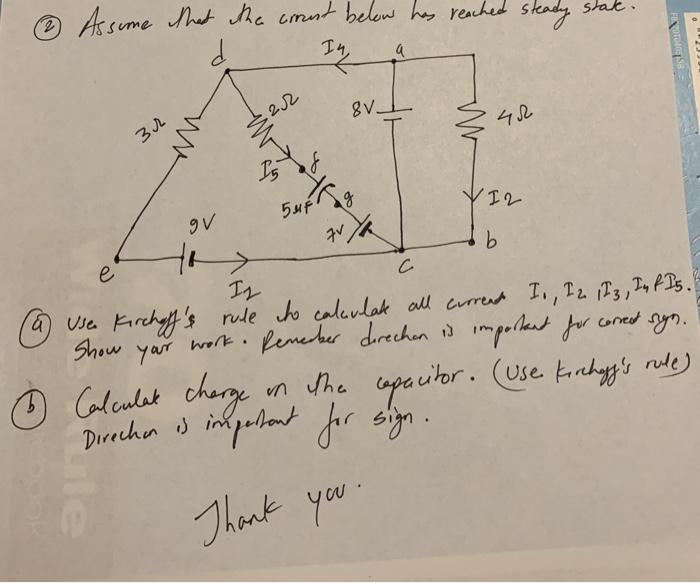 ② Assume that the circuit below has reached steady state.
d
I4
a
3Ω
2Ω
8V
4Ω
I5
f
5μF
g
I2
9V
7V
b
e
I1
c
ⓐ Use Kirchoff's rule to calculate all current I1, I2, I3, I4 & I5.
Show your work. Remember direction is important for correct sign.
ⓑ Calculate charge on the capacitor. (Use Kirchoff's rule)
Direction is important for sign.
Thank you.